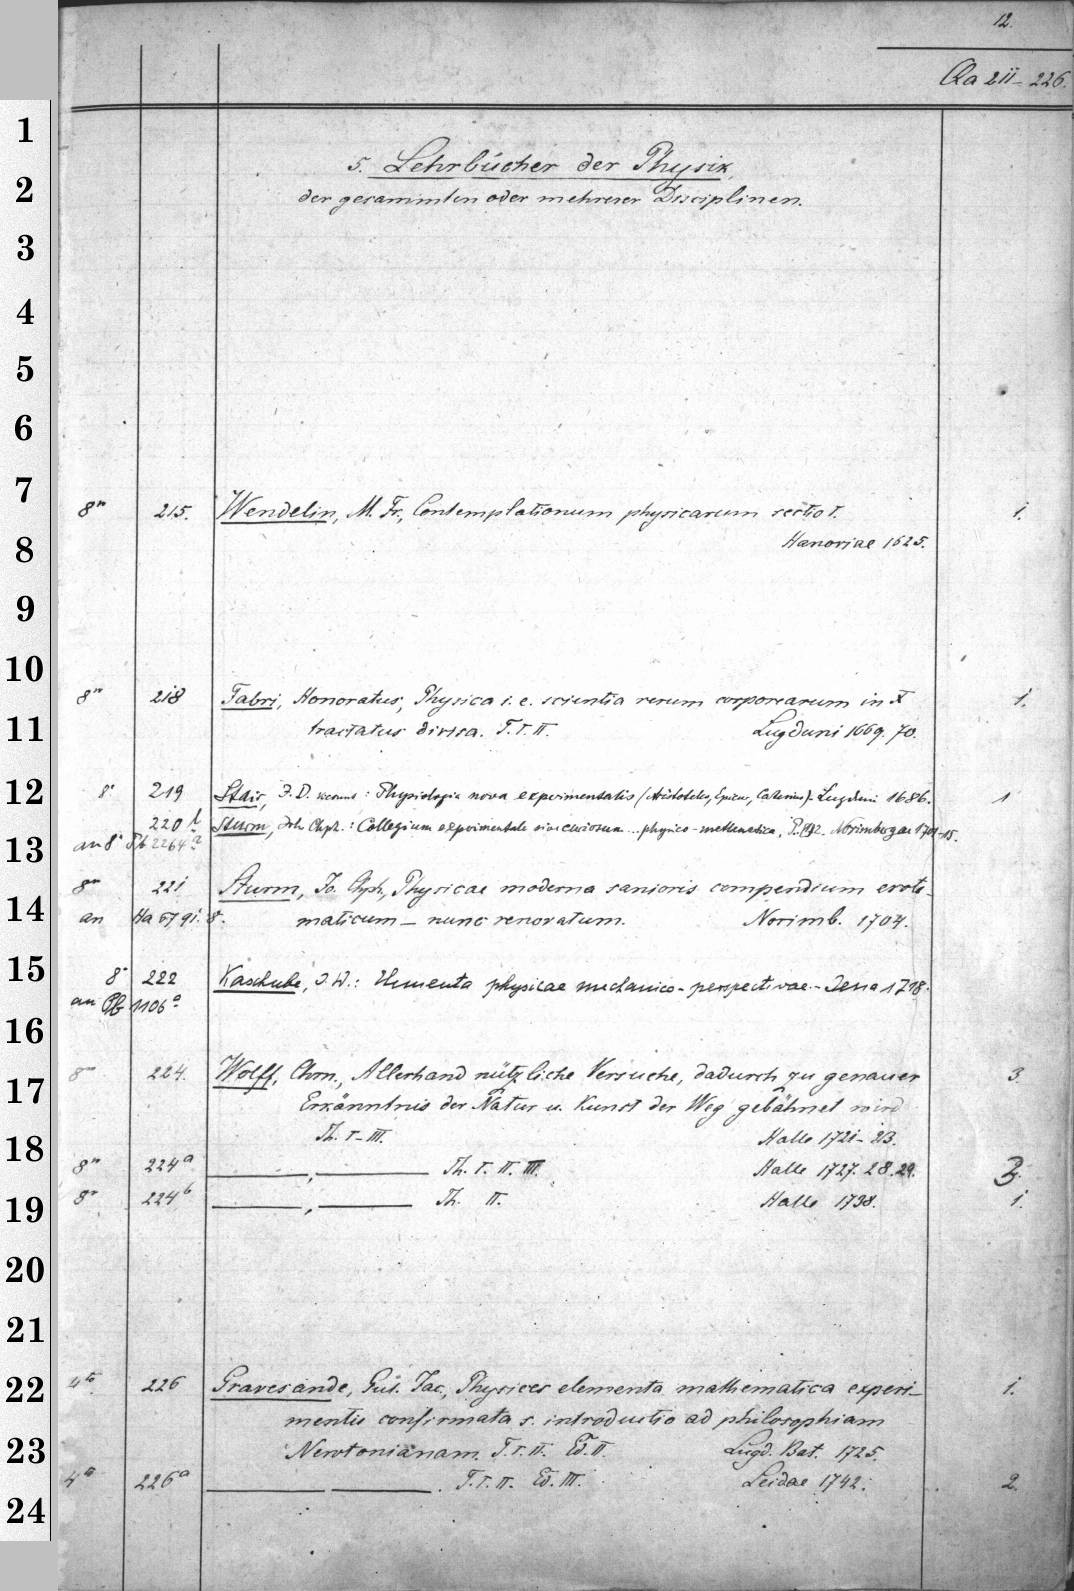 12.
Qa 211-226.
1
2
3
4
5
6
7
8
9
10
11
12
13
14
15
16
17
18
19
20
21
22
23
24
5. Lehrbücher der Physik,
der gesammten oder mehrerer Disciplinen.
8° 215. Wendelin, M. Fr., Contemplationum physicarum sectio I. 1.
Hanoviae 1625.
8° 218 Fabri, Honoratus, Physica i. e. scientia rerum corporearum in X 1.
tractatus divisa. T. I. II. Lugduni 1669. 70.
8° 219 Stair, J. D. : Physiologia nova experimentalis (Aristotelis, Epicur, Cartesius). Lugduni 1686. 1
220 Sturm, Joh. Chph.: Collegium experimentale sive curiosum ... physico-mathematica, Norimbergae 1701-15.
an 8° 2264
8° 221 Sturm, Jo. Chph., Physicae moderna sanioris compendium erote-
an Ha 679i. 8°. maticum - nunc renovatum. Norimb. 1704.
8° 222 Kaschube, J. W.: Elementa physicae mechanico-perspectivae - Jena 1718.
an Pb 1106a
8° 224. Wolff, Chrn., Allerhand nützliche Versuche, dadurch zu genauer 3.
Erkänntnis der Natur u. Kunst der Weg gebähnet wird
Th. I-III. Halle 1721-23.
8° 224a ———, ——— Th. I. II. III. Halle 1727. 28. 29. 3.
8° 224b ———, ——— Th. II. Halle 1738. 1.
4to. 226 Gravesande, Gul. Jac., Physices elementa mathematica experi- 1.
mentis confirmata s. introductio ad philosophiam
Newtonianam. T. I. II. Ed. II. Lugd. Bat. 1725.
4to 226a ——— ———. T. I. II. Ed. III. Leidae 1742. 2.